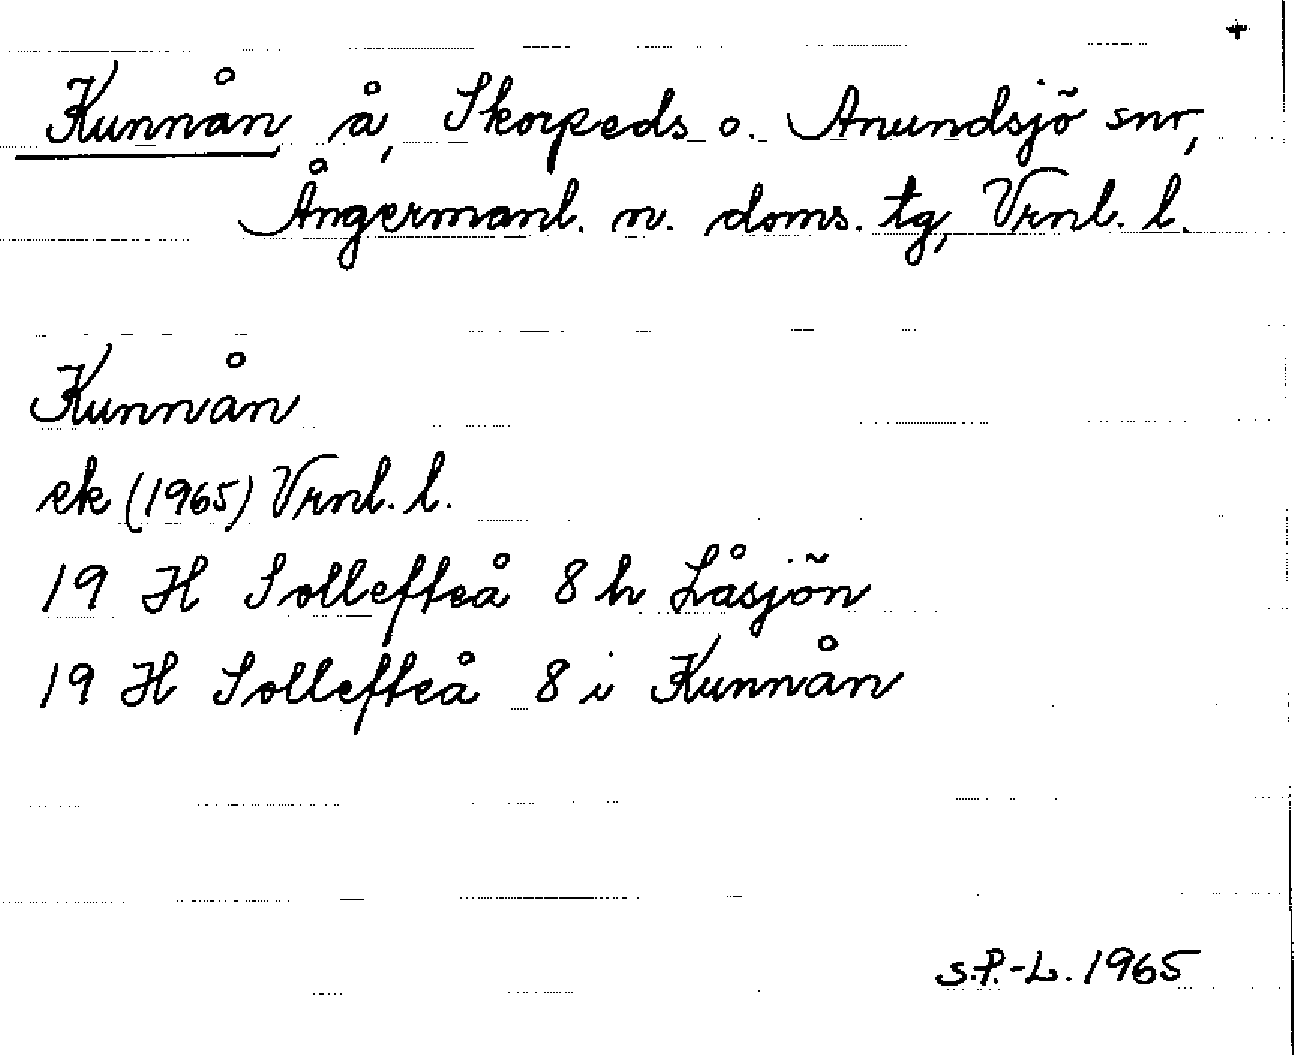 +
Kunnån, å, Skorpeds o. Anundsjö snr,
Ångermanl. n. doms. tg, Vrnl. l.
Kunnån
ek (1965) Vrnl. l.
19 H Sollefteå 8 h Låsjön
19 H Sollefteå 8 i Kunnån
S.P.-L. 1965